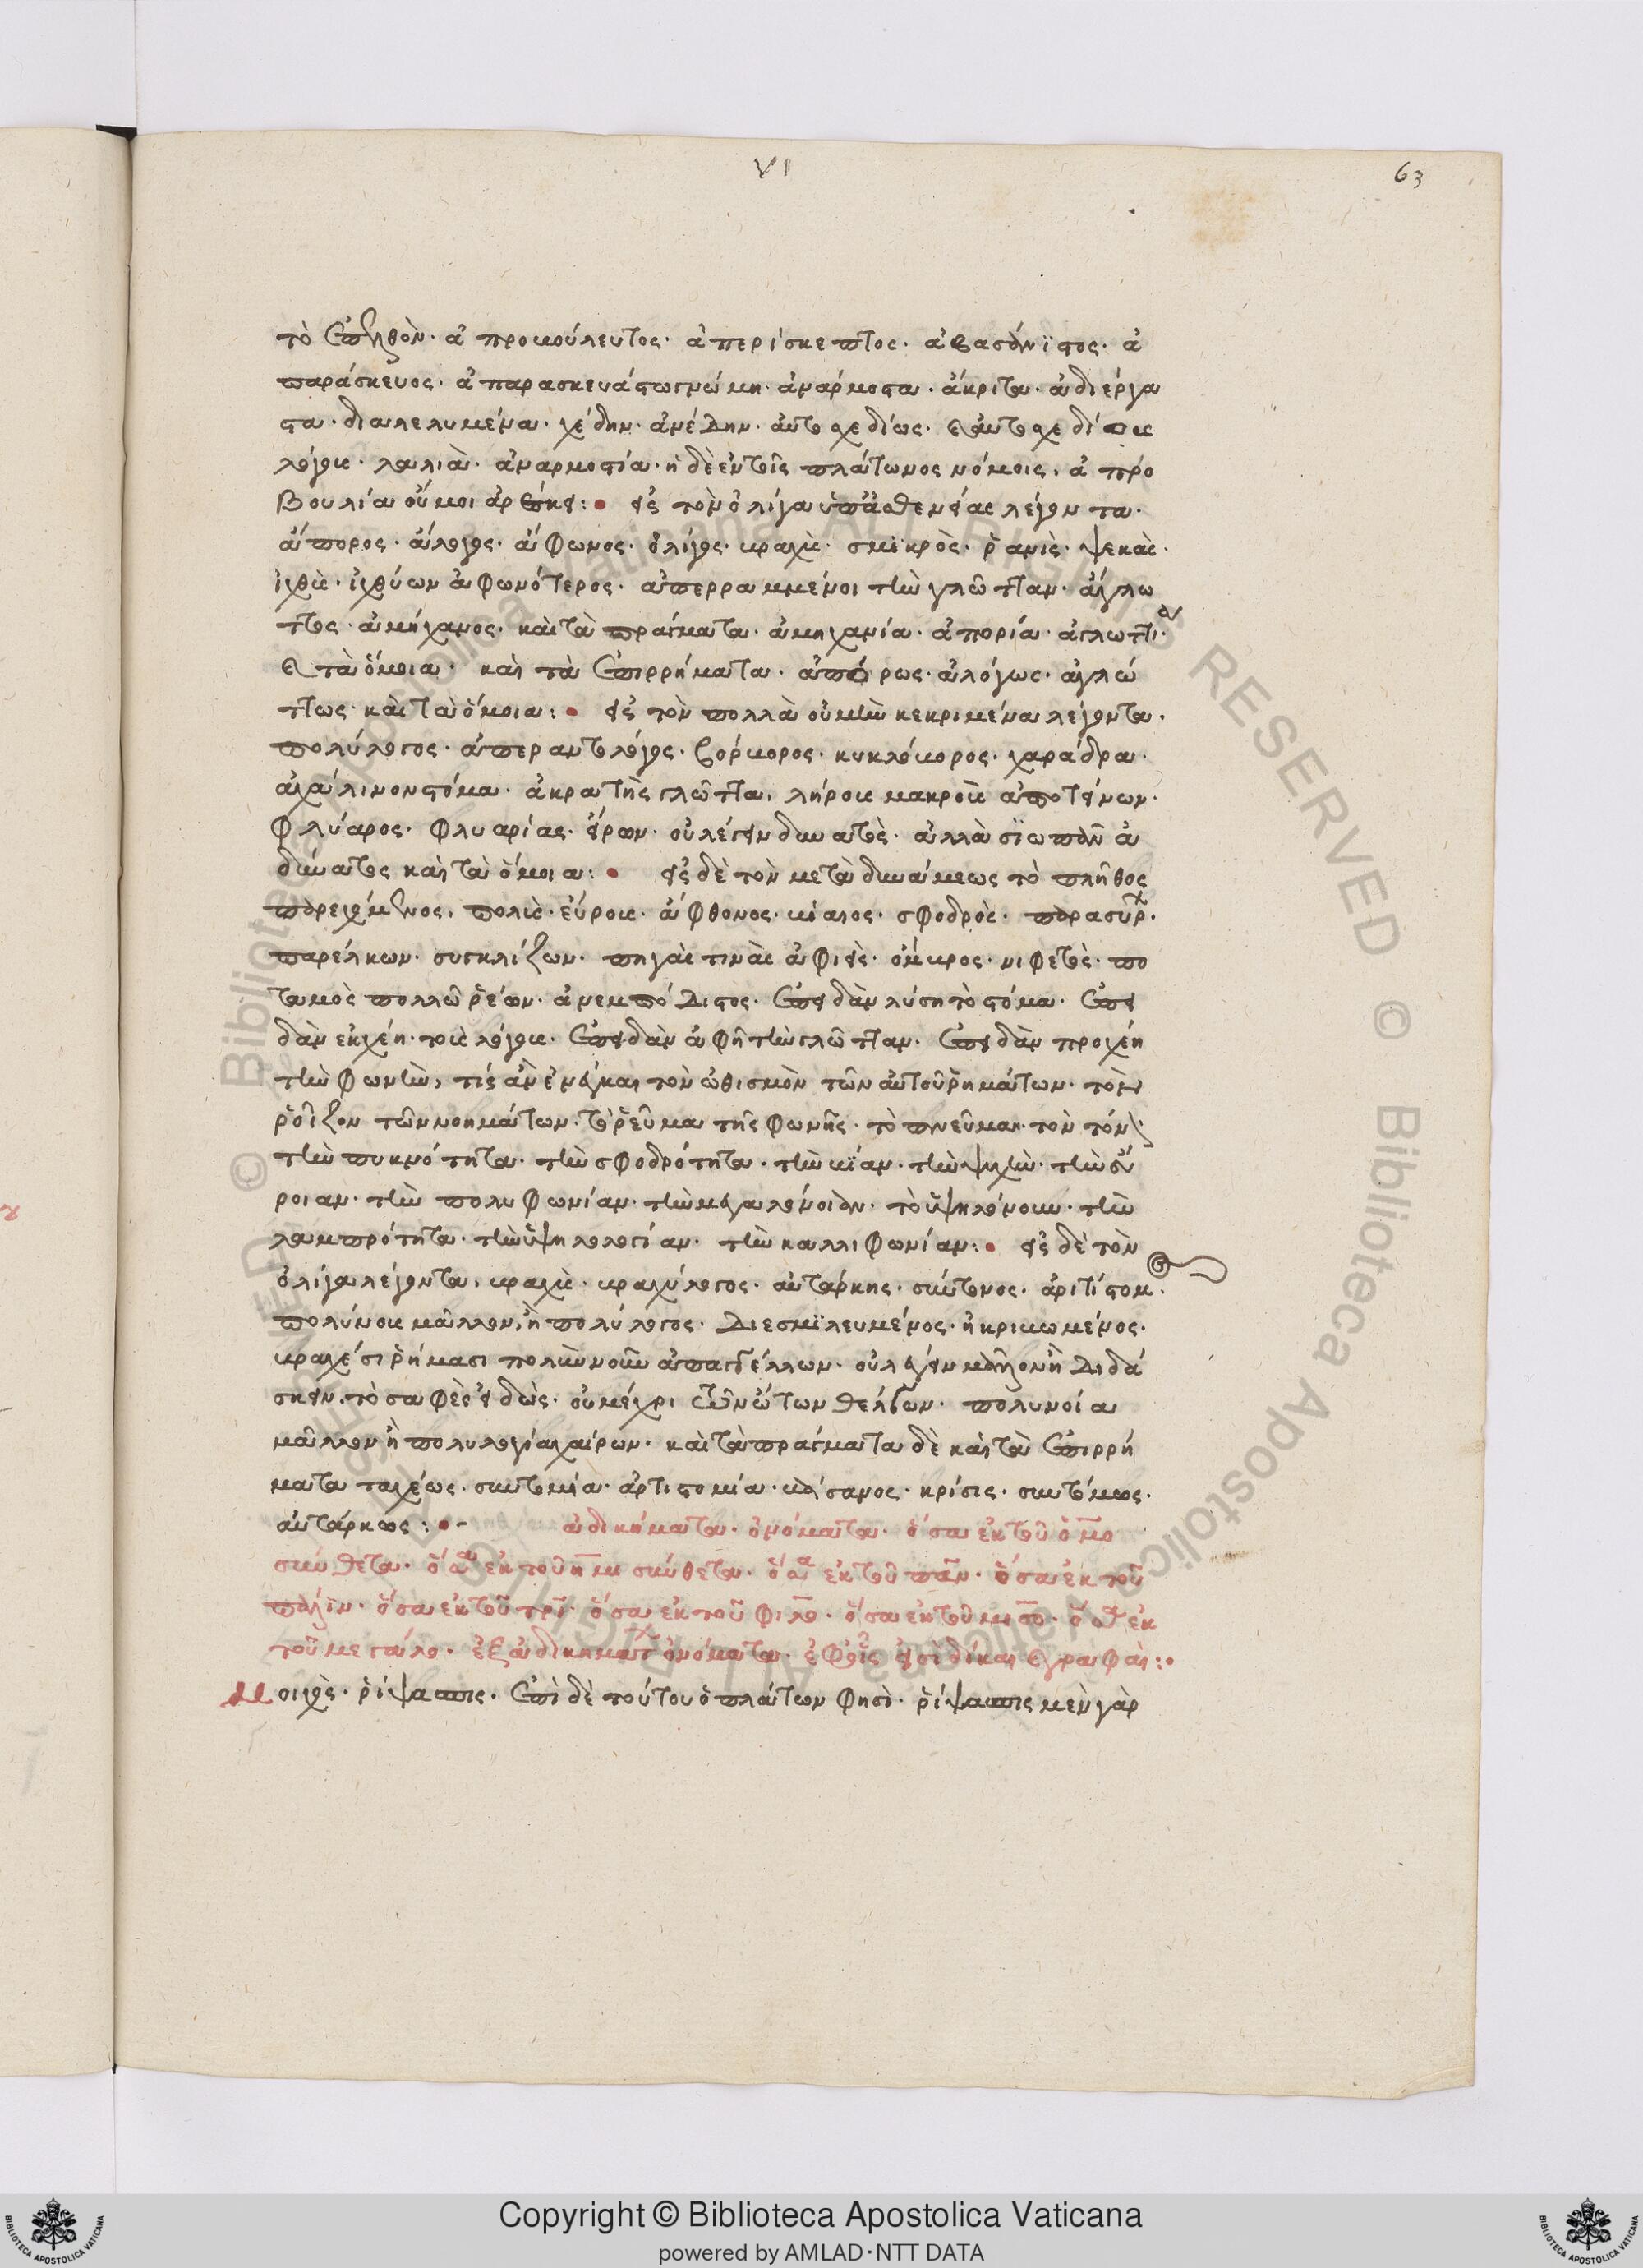 VI
63
τὸ ἐπελθὸν· ἀπροβούλευτος· ἀπερίσκεπτος· ἀβασάνιστος· ἀ
παράσκευος· ἀπαρασκευάστω γνώμη· ἀνάρμοστα· ἄκριτα· ἀδιέργα
στα· διαλελυμένα· χύδην· ἀνέδην· αὐτοσχεδίως· καὶ αὐτοσχεδίοις
λόγοις· λαλιὰ· ἀναρμοστία· ἡ δὲ ἐν τοῖς πλάτωνος νόμοις, ἀπρο
βουλία οὔ μοι ἀρέσκει: εἰς τὸν ὀλίγα ὑπὸ ἀσθενείας λέγοντα·
ἄπορος· ἄλογος· ἄφωνος· ὀλίγος· βραχὺς· σμικρὸς· ῥανὶς· ψεκὰς·
ἰχθὺς· ἰχθύων ἀφωνότερος· ἀπερραμμένος τὴν γλῶτταν· ἄγλω
ττος· ἀμήχανος· καὶ τὰ πράγματα· ἀμηχανία· ἀπορία· ἀγλωττία·
καὶ τὰ ὅμοια· καὶ τὰ ἐπιρρήματα· ἀπόρως· ἀλόγως· ἀγλώ
ττως· καὶ τὰ ὅμοια: εἰς τὸν πολλὰ οὐ μὴν κεκριμένα λέγοντα·
πολύλογος· ἀπεραντολόγος· βόρβορος· κυκλόβορος· χαράδρα·
ἀχάλινον στόμα· ἀκρατὴς γλῶττα, λήρους μακροὺς ἀποτείνων·
φλύαρος· φλυαρίας· εἴρων· οὐ λέγειν δυνατὸς· ἀλλὰ σιωπᾶν ἀ
δύνατος καὶ τὰ ὅμοια: εἰς δὲ τὸν μετὰ δυνάμεως τὸ πλῆθος
παρεχόμενος, πολὺς· εὔρους· ἄφθονος· βίαιος· σφοδρὸς· παρασύρων·
παρέλκων· συγκλύζων· πηγάς τινας ἀφιεὶς· ὄμβρος· νιφετὸς· πο
ταμὸς πολλῶ ῥέων· ἀνεμπόδιστος· ἐπειδὰν λύση τὸ στόμα· ἐπει
δὰν ἐκχέη· τοὺς λόγους· ἐπειδὰν ἀφῆ τὴν γλῶτταν· ἐπειδὰν προχέη
τὴν φωνὴν, τίς ἂν ἐνέγκαι τὸν ὠθισμὸν τῶν αὐτοῦ ῥημάτων· τὸν
ῥοῖζον τῶν νοημάτων· τὸ ῥεῦμα τῆς φωνῆς· τὸ πνεῦμα· τὸν τόνον·
τὴν πυκνότητα· τὴν σφοδρότητα· τὴν βίαν· τὴν ψυχὴν· τὴν εὔ
ροιαν· τὴν πολυφωνίαν· τὴν μεγαλόνοιαν· τὸ ὑψηλόνουν· τὴν
λαμπρότητα· τὴν ὑψηλολογίαν· τὴν καλλιφωνίαν: εἰς δὲ τὸν
ὀλίγα λέγοντα, βραχὺς· βραχύλογος· αὐτάρκης· σύντονος· ἀρτίστομος·
πολύνους μᾶλλον, ἢ πολύλογος· διεσμιλευμένος· ἠκριβωμένος·
βραχέσι ῥήμασι πολὺν νοῦν ἀπαγγέλλων· οὐ λέγειν μᾶλλον ἢ διδά
σκειν· τὸ σαφὲς εἰδὼς· οὐ μέχρι τῶν ὤτων θέλγων· πολυνοία
μᾶλλον ἢ πολυλογία χαίρων· καὶ τὰ πράγματα δὲ καὶ τὰ ἐπιρρή
ματα ταχέως· συντομία· ἀρτιστομία· βάσανος· κρίσις· συντόμως·
αὐτάρκως: ἀδικήματα· ὀνόματα· ὅσα ἐκ τοῦ ὁμο
σύνθετα· ὅσα ἐκ τοῦ ημι σύνθετα· ὅσα ἐκ τοῦ παν· ὅσα ἐκ τοῦ
πάλιν· ὅσα ἐκ τοῦ τρι· ὅσα ἐκ τοῦ φιλο· ὅσα ἐκ τοῦ μισο· ὅσα ἐκ
τοῦ μεγαλο· ἐξ ἀδικημάτων ὀνόματα· ἐφ' οἷς εἰσὶ δίκαι καὶ γραφαὶ:
Μοιχὸς· ῥίψασπις· ἐπὶ δὲ τούτου ὁ πλάτων φησὶ· ῥίψασπις μὲν γὰρ
© Biblioteca Apostolica Vaticana ALL RIGHTS RESERVED
Copyright © Biblioteca Apostolica Vaticana
powered by AMLAD·NTT DATA
BIBLIOTECA APOSTOLICA VATICANA
BIBLIOTECA APOSTOLICA VATICANA